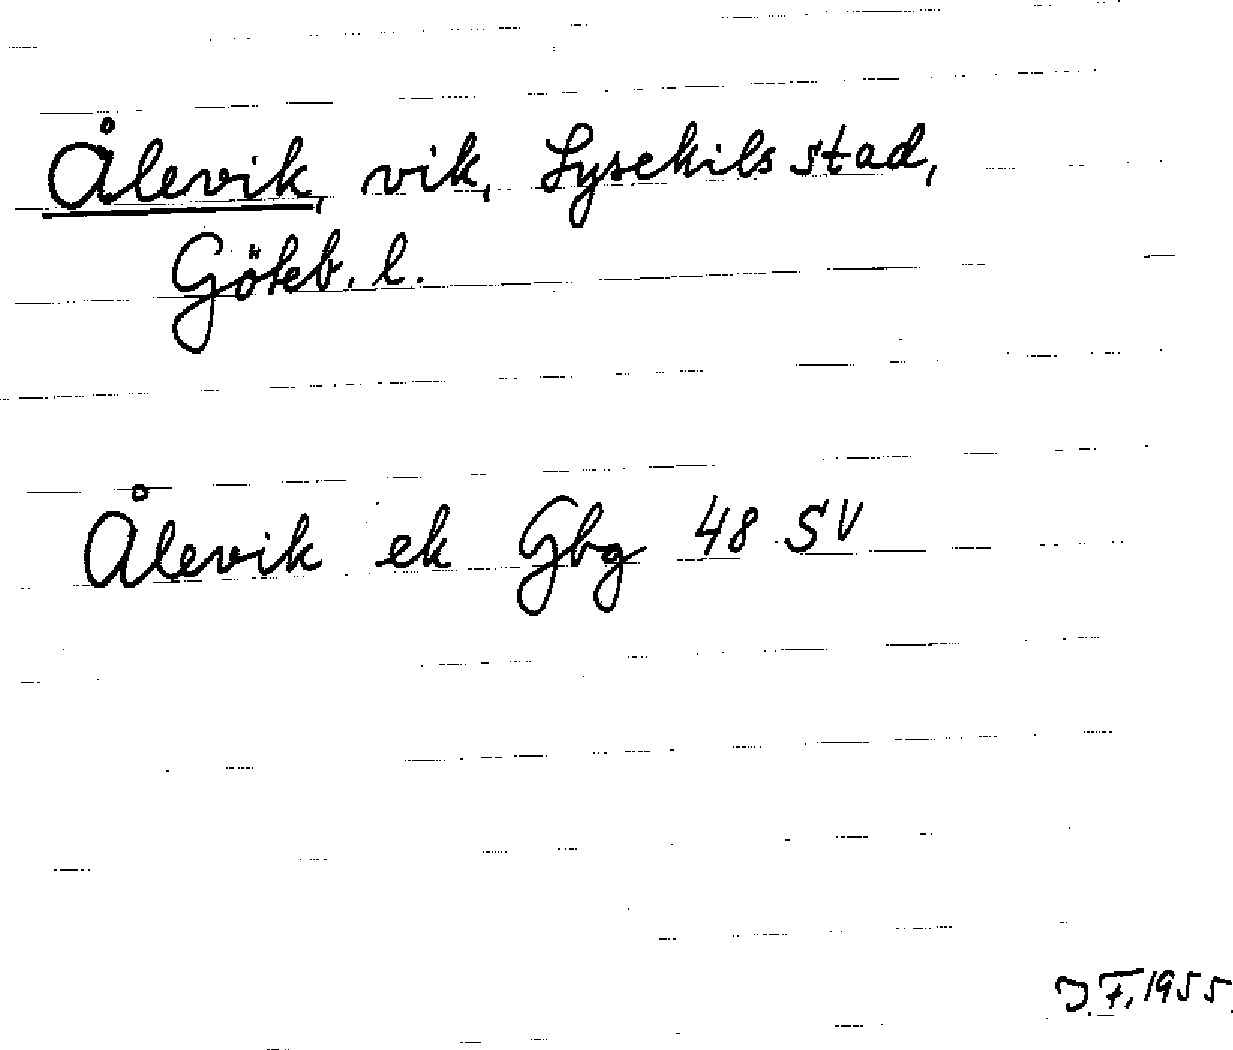 Ålevik, vik, Lysekils stad,
Göteb. l.
Ålevik ek Gbg 48 SV
J.F. 1955